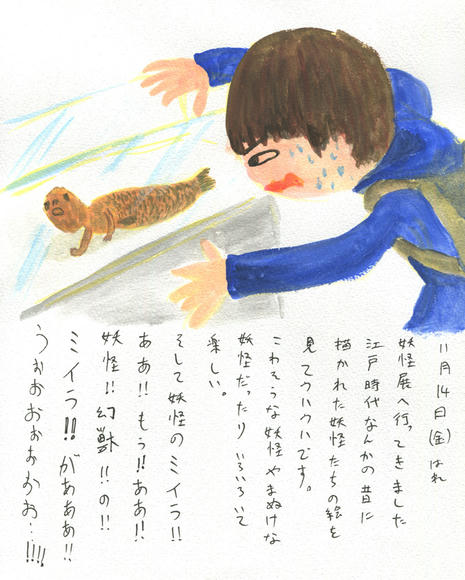 11月14日(金)はれ
妖怪展へ行ってきました
江戸時代なんかの昔に
描かれた妖怪たちの絵を
見てウハウハです。
こわそうな妖怪やまぬけな
妖怪だったりいろいろいて
楽しい。
そして妖怪のミイラ!!
ああ!!もう!!ああ!!
妖怪!!幻獣!!の!!
ミイラ!!がぁぁぁ!!
うぉぉぉぉぉかぉ…!!!!